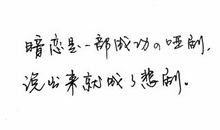 暗恋是一部成功的哑剧,
说出来就成了悲剧。